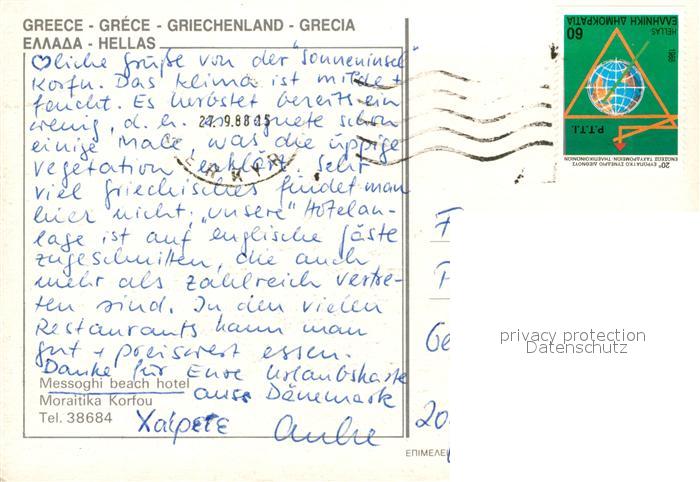 GREECE - GRÉCE - GRIECHENLAND - GRECIA
ΕΛΛΑΔΑ - HELLAS
♡liche Grüße von der "Sonneninsel"
Korfu. Das Klima ist milde +
feucht. Es herbstet bereits ein
wenig, d. h. es regnete schon
einige Male, was die üppige
Vegetation erklärt. Sehr
viel griechisches findet man
hier nicht; "unsere" Hotelan-
lage ist auf englische Gäste
zugeschnitten, die auch
mehr als zahlreich vertre-
ten sind. In den vielen
Restaurants kann man
gut + preiswert essen.
Danke für Eure Urlaubskarte
aus Dänemark
Χαίρετε Anke
Messoghi beach hotel
Moraitika Korfou
Tel. 38684
9.88 15
ΕΠΙΜΕΛΕΙ
F
Ge
20
60
ΕΛΛΗΝΙΚΗ ΔΗΜΟΚΡΑΤΙΑ
HELLAS
1988
P.T.T.I.
20º ΕΥΡΩΠΑΪΚΟ ΣΥΝΕΔΡΙΟ ΔΙΕΘΝΟΥΣ
ΕΝΩΣΕΩΣ ΤΑΧΥΔΡΟΜΕΙΩΝ ΤΗΛΕΠΙΚΟΙΝΩΝΙΩΝ
privacy protection
Datenschutz